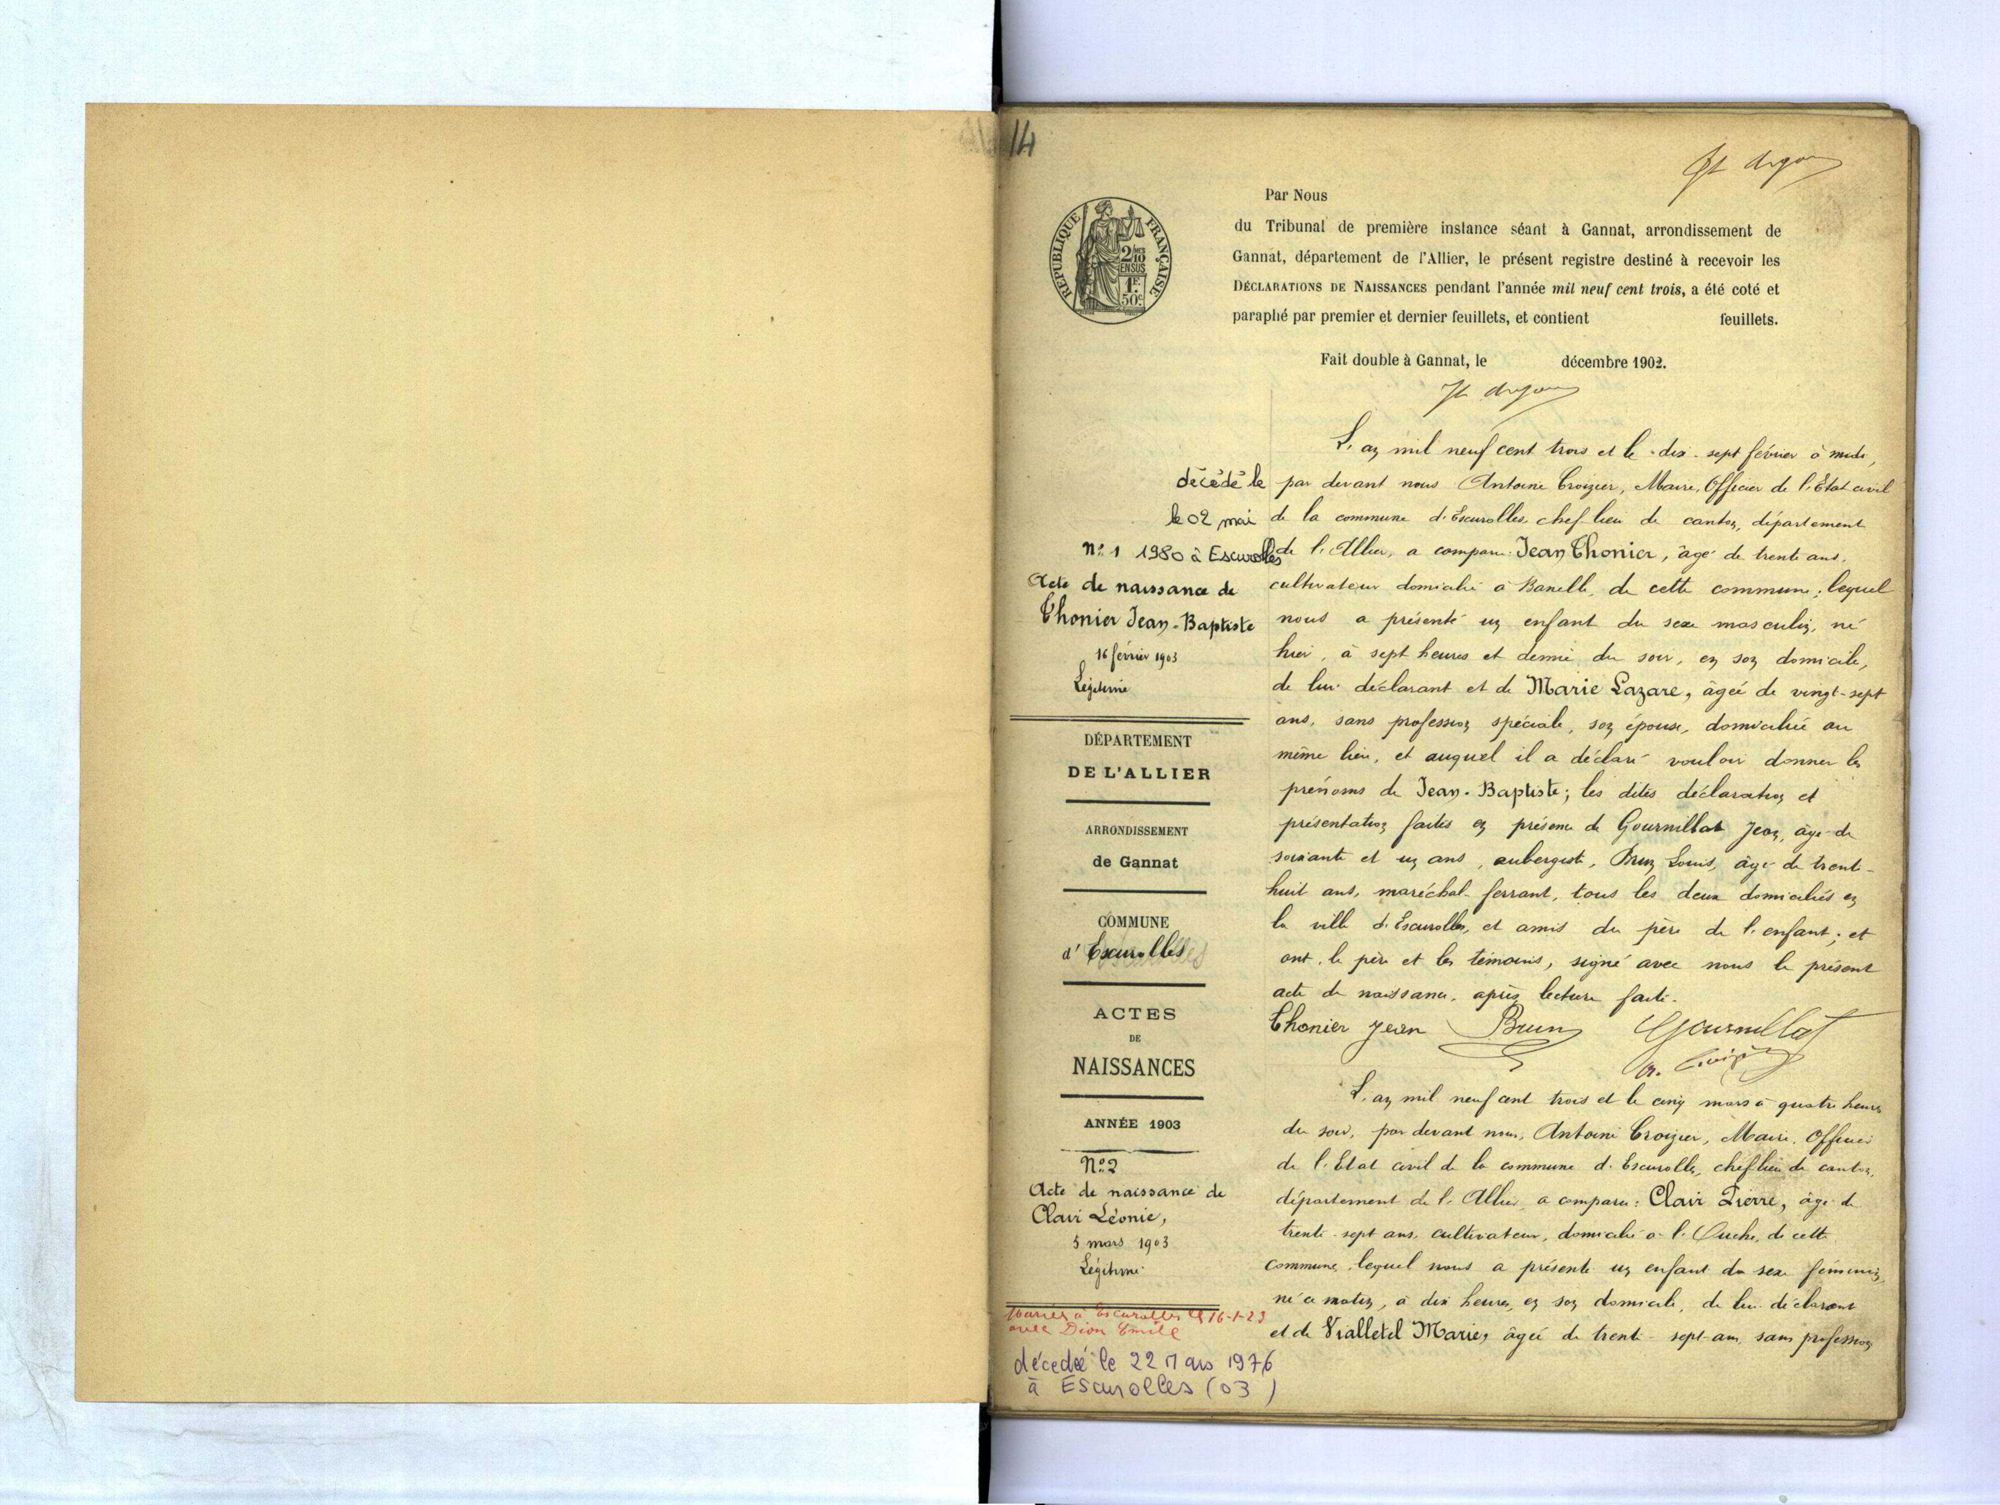 14
Par Nous
du Tribunal de première instance séant à Gannat, arrondissement de
Gannat, département de l'Allier, le présent registre destiné à recevoir les
DÉCLARATIONS DE NAISSANCES pendant l'année mil neuf cent trois, a été coté et
paraphé par premier et dernier feuillets, et contient feuillets.
Fait double à Gannat, le décembre 1902.
RÉPUBLIQUE FRANÇAISE
2/10 EN SUS
1F. 50c
décédé le
le 02 mai
1980 à Escurolles
N° 1
Acte de naissance de
Thonier Jean-Baptiste
16 février 1903
Légitime
L'an mil neuf cent trois et le dix-sept février à midi,
par devant nous Antoine Croizier, Maire, Officier de l'Etat civil
de la commune d'Escurolles, chef lieu de canton, département
de l'Allier, a comparu: Jean Thonier, âgé de trente ans,
cultivateur domicilié à Banelle, de cette commune; lequel
nous a présenté un enfant du sexe masculin, né
hier, à sept heures et demie du soir, en son domicile,
de lui déclarant et de Marie Lazare, âgée de vingt-sept
ans, sans profession spéciale, son épouse, domiciliée au
même lieu, et auquel il a déclaré vouloir donner les
prénoms de Jean-Baptiste; les dites déclaration et
présentation faites en présence de Gournillat Jean, âgé de
soixante et un ans, aubergiste, Brun Louis, âgé de trente-
huit ans, maréchal-ferrant, tous les deux domiciliés en
la ville d'Escurolles, et amis du père de l'enfant; et
ont, le père et les témoins, signé avec nous le présent
acte de naissance, après lecture faite.
Thonier Jean Brun Gournillat
A. Croizier
DÉPARTEMENT
DE L'ALLIER
ARRONDISSEMENT
de Gannat
COMMUNE
d'Escurolles
ACTES
DE
NAISSANCES
ANNÉE 1903
N° 2
Acte de naissance de
Clair Léonie,
5 mars 1903
Légitime
Mariée à Escurolles le 16-1-23
avec Dion Emile
décédée le 22 Mars 1976
à Escurolles (03)
L'an mil neuf cent trois et le cinq mars à quatre heures
du soir, par devant nous, Antoine Croizier, Maire, Officier
de l'Etat civil de la commune d'Escurolles, chef lieu de canton,
département de l'Allier, a comparu: Clair Pierre, âgé de
trente-sept ans, cultivateur, domicilié à l'Ouche, de cette
commune, lequel nous a présenté un enfant du sexe féminin,
né ce matin, à dix heures, en son domicile, de lui déclarant
et de Vialletel Marie, âgée de trente-sept ans, sans profession